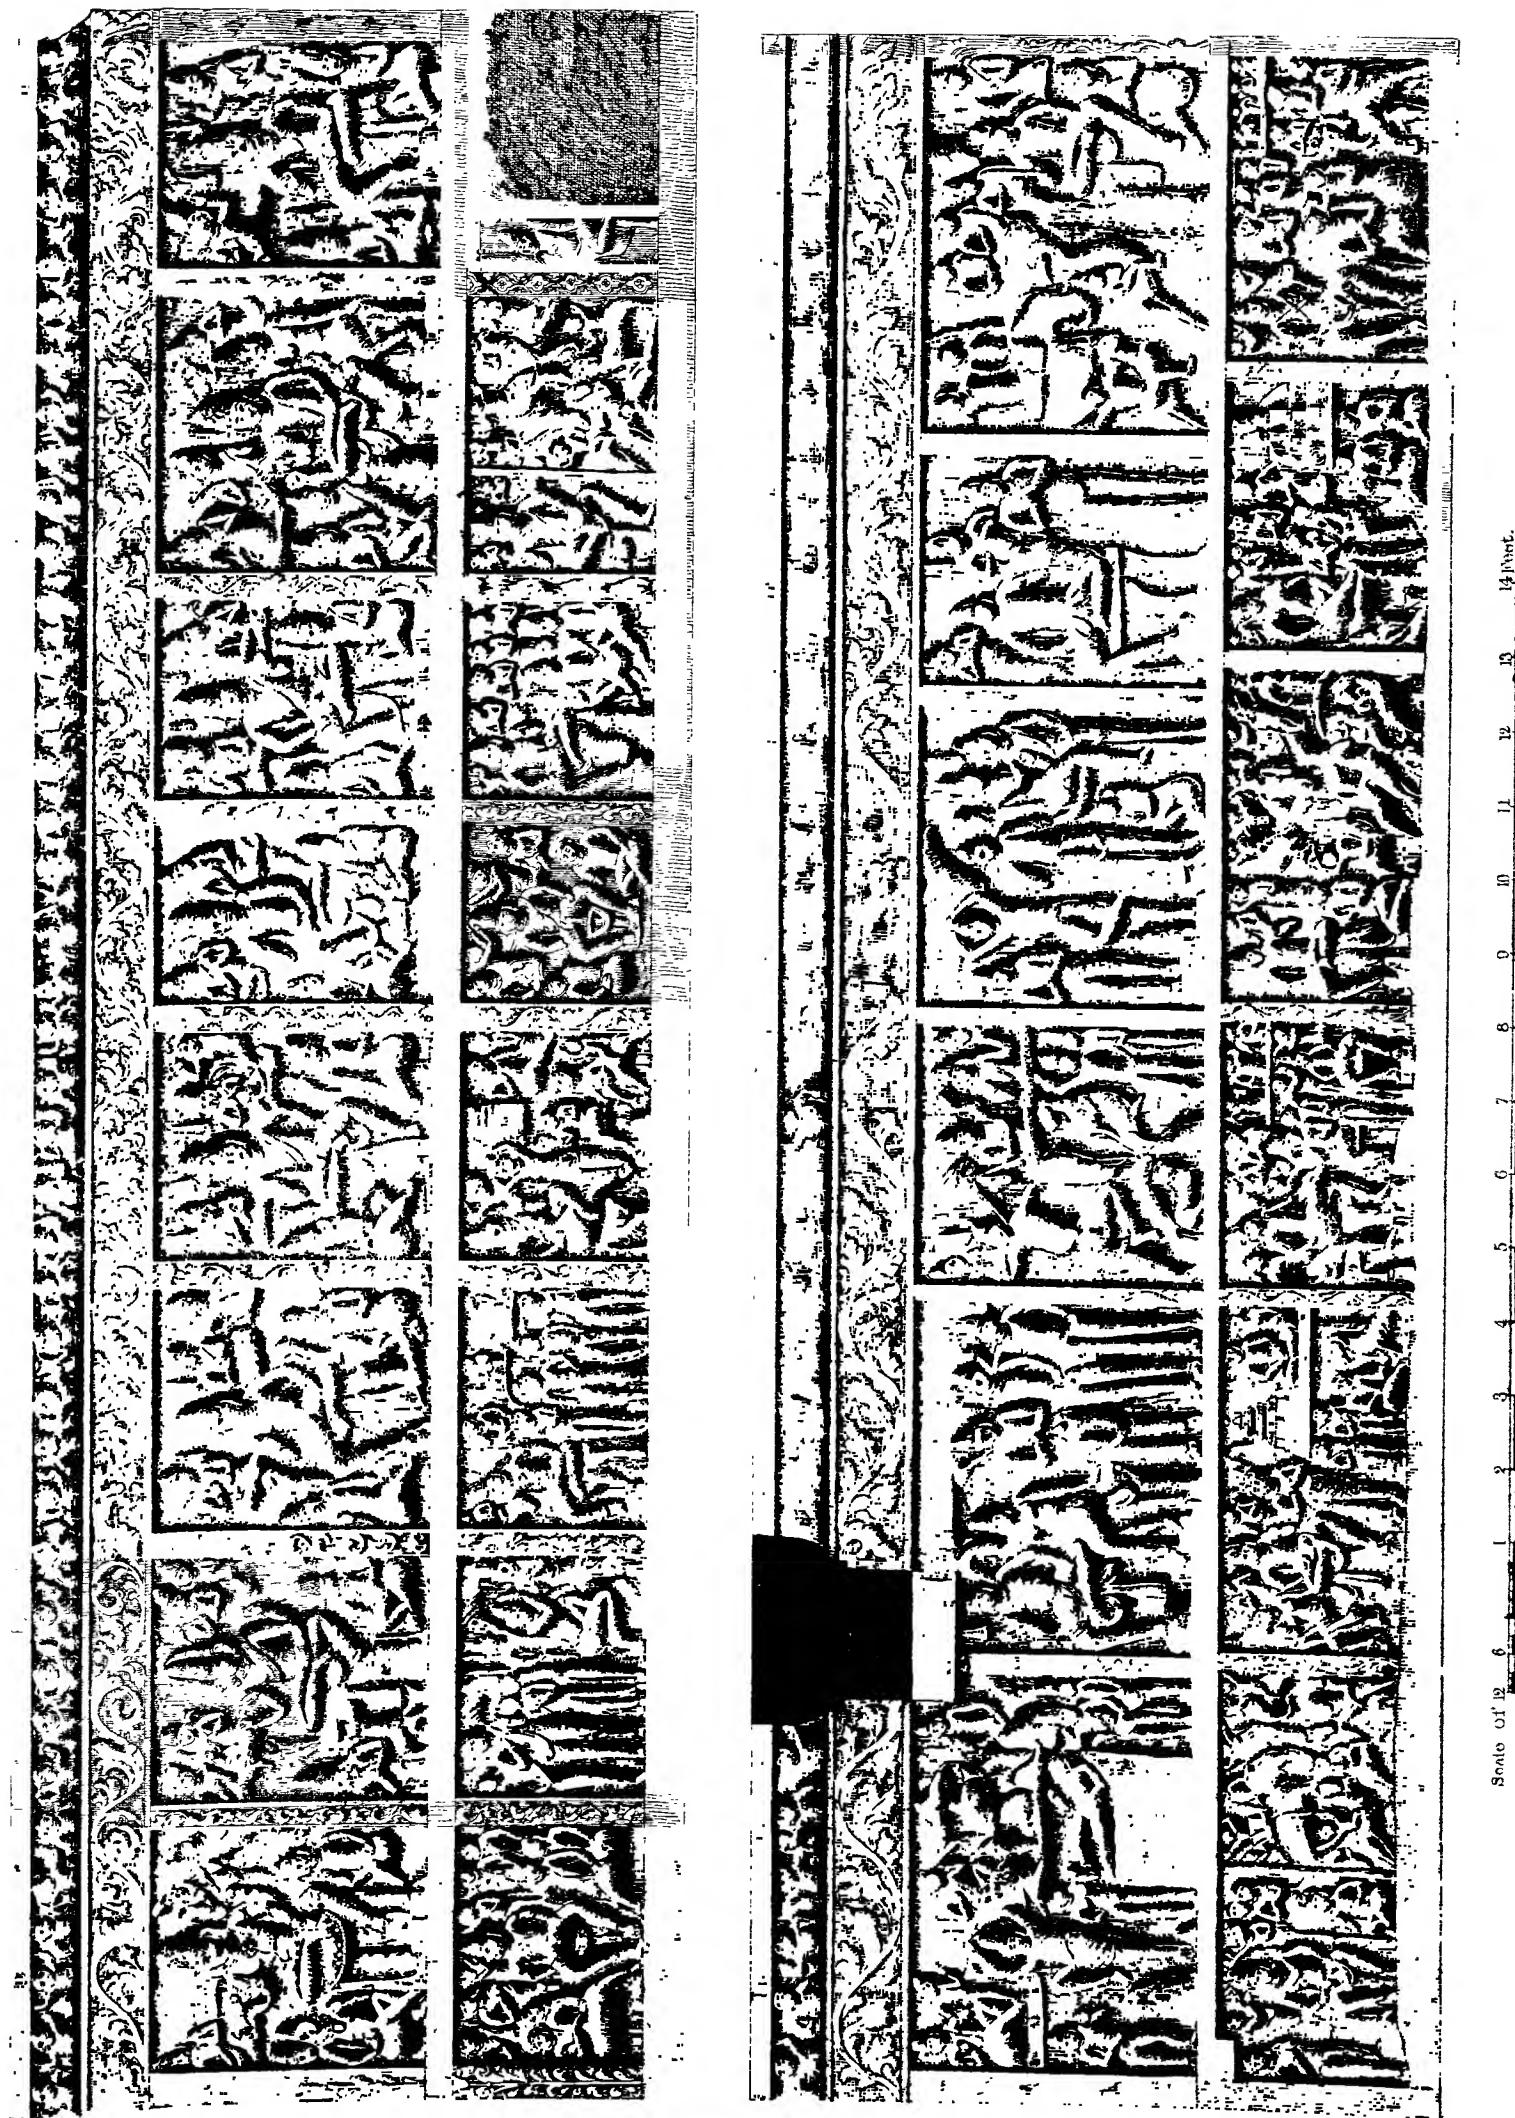 Scale of 12 6 1 2 3 4 5 6 7 8 9 10 11 12 13 14 Feet.